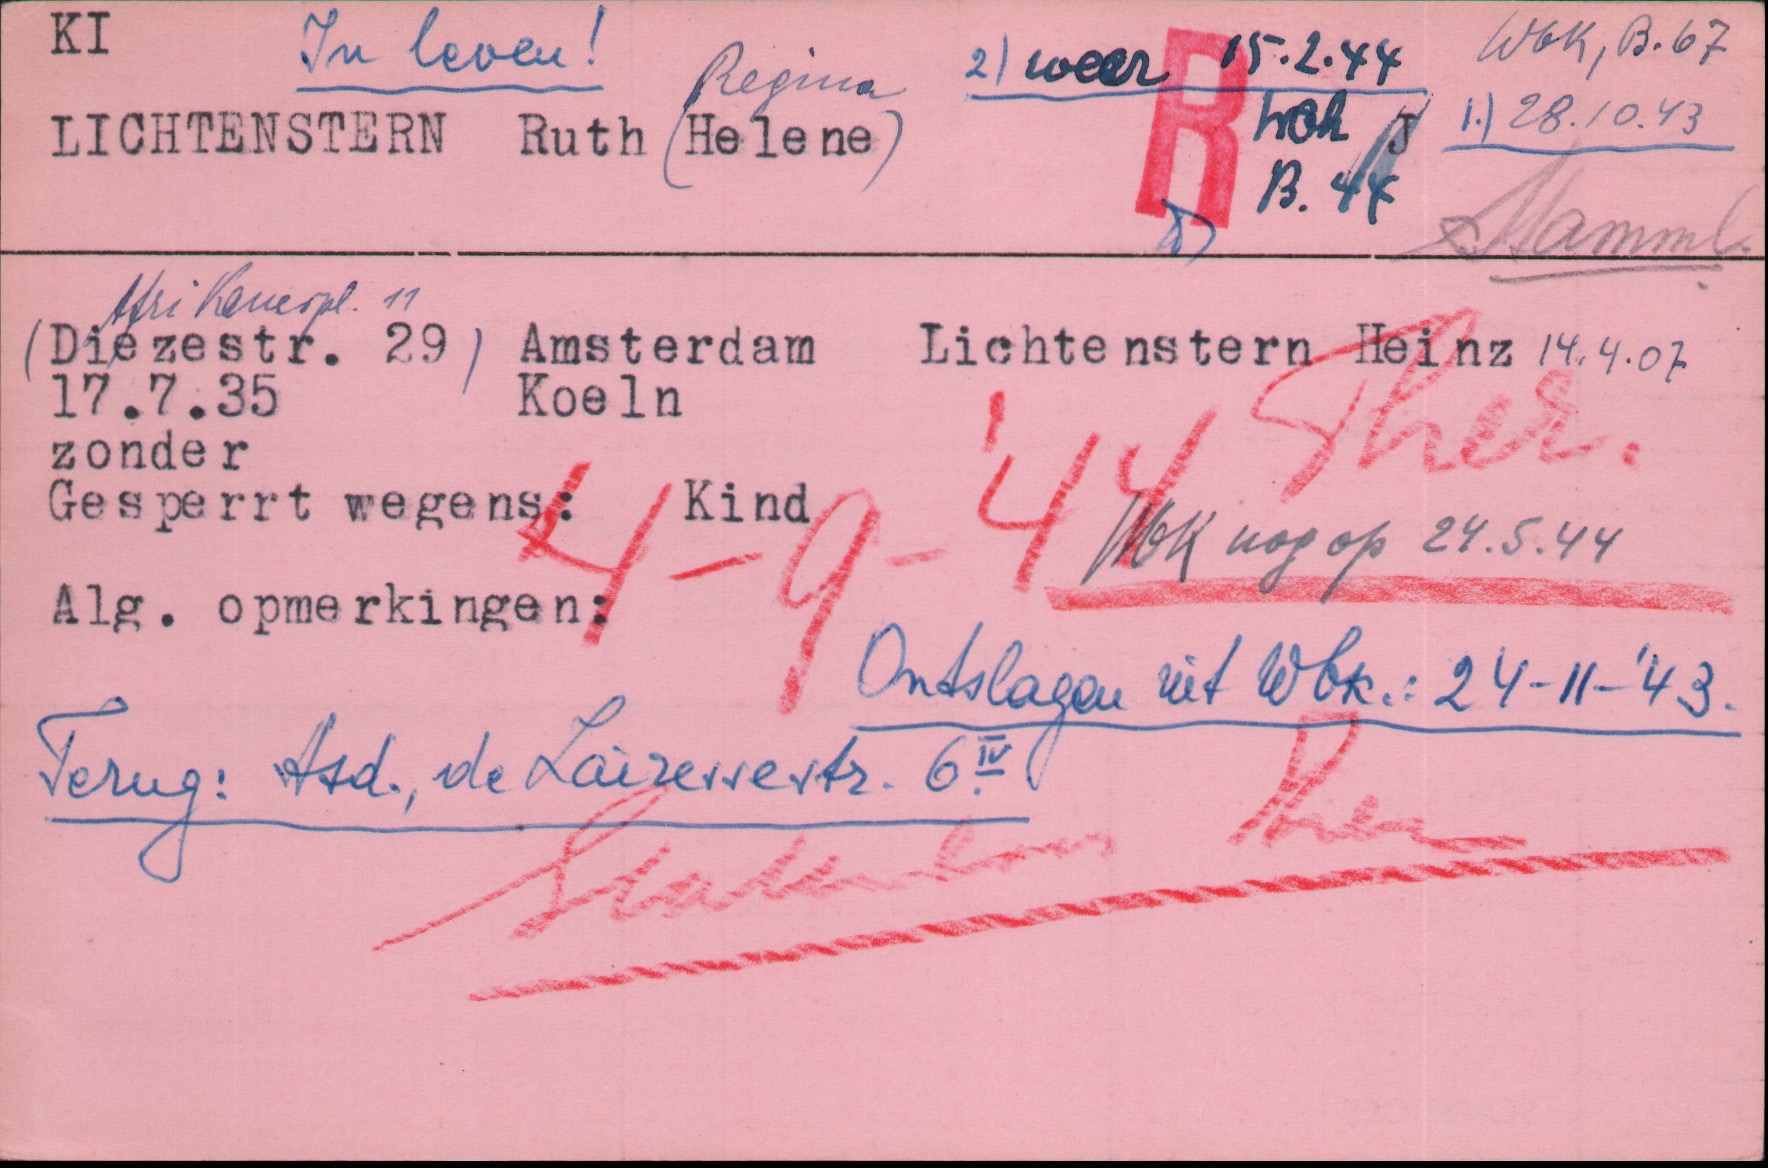 KI In leven! 2) weer 15.2.44 Wbk, B. 67
Regina
LICHTENSTERN Ruth (Helene) R Wbk J 1.) 28.10.43
B. 44
Stamml.
Afrikanerpl. 11
(Diezestr. 29) Amsterdam Lichtenstern Heinz 14.4.07
17.7.35 Koeln Ther.
zonder
Gesperrt wegens: Kind
4-9-'44 Wbk nog op 24.5.44
Alg. opmerkingen:
Ontslagen uit Wbk.: 24-11-'43.
Terug: Asd., de Lairessestr. 6 IV
Ther